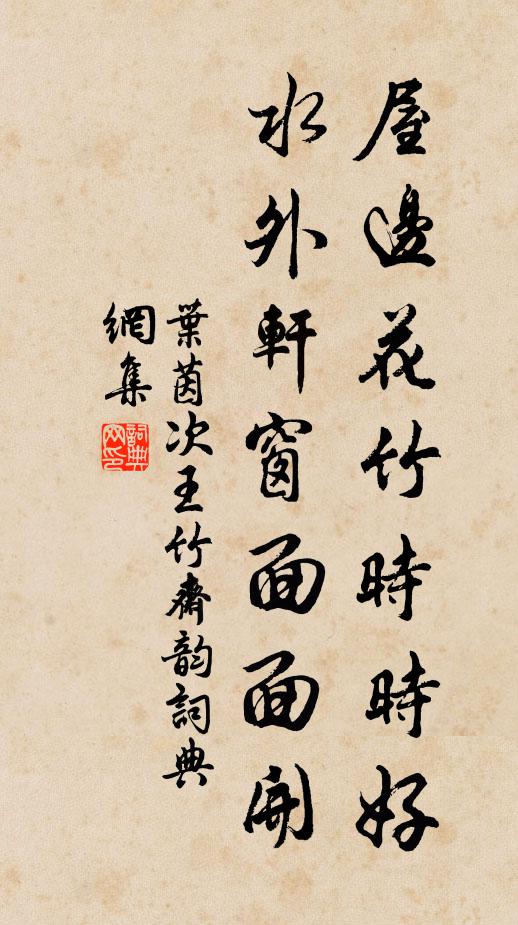 屋邊花竹時時好
水外軒窗面面開
葉茵次王竹齋韵詞典
網集
詞典
网印